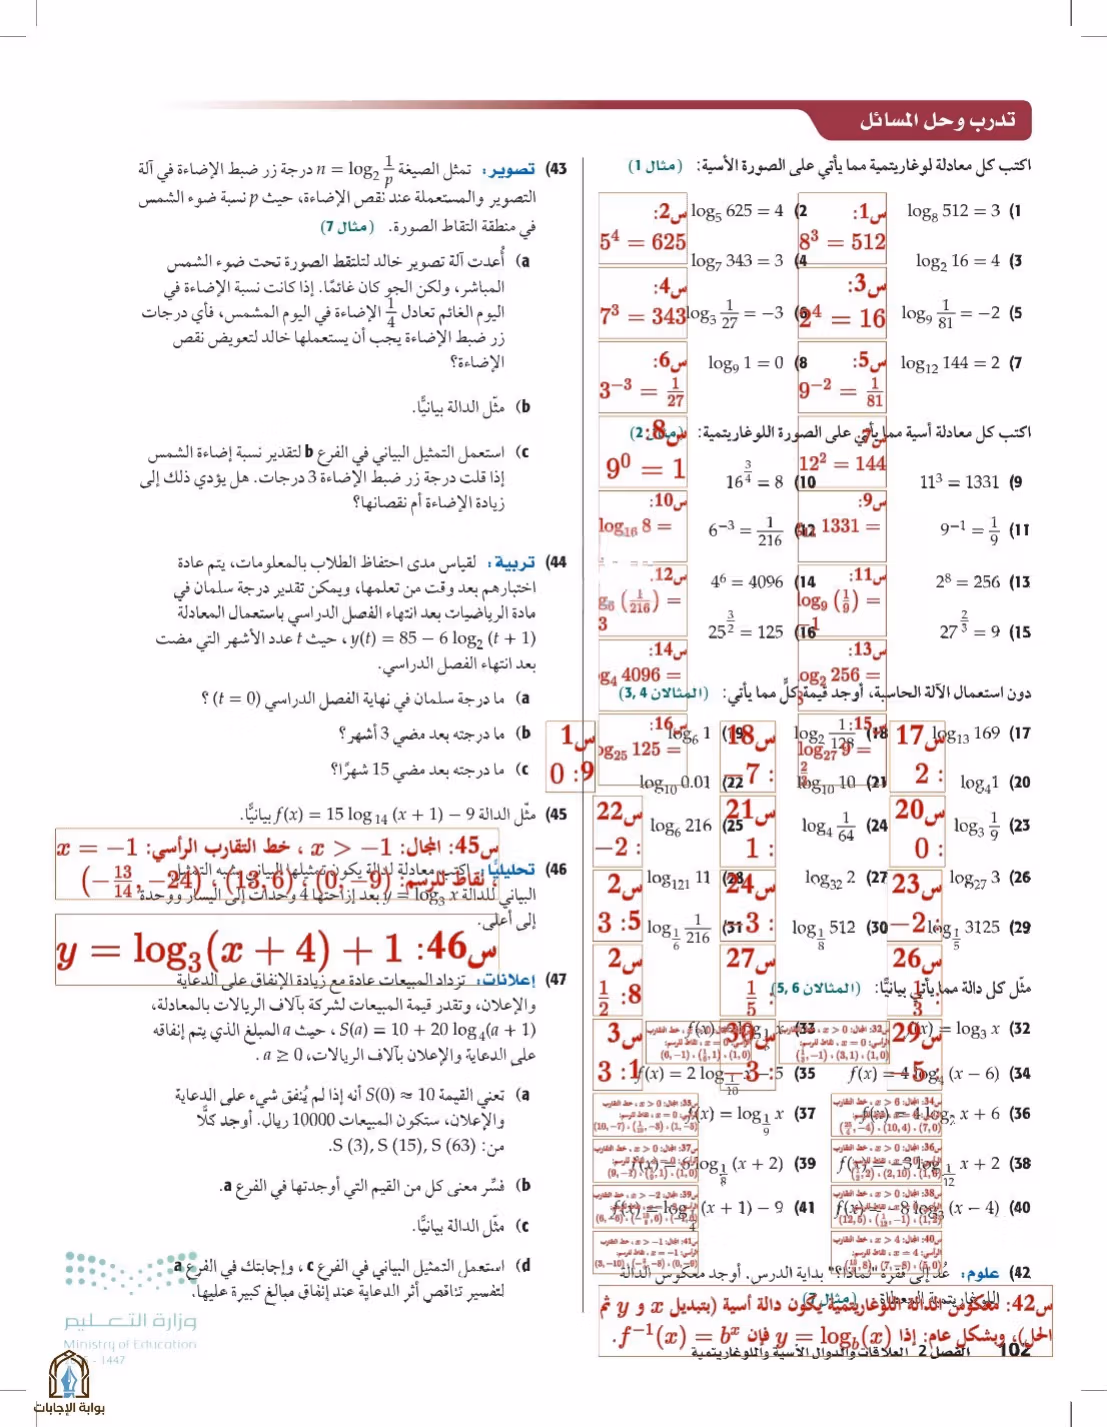 تدرب وحل المسائل
اكتب كل معادلة لوغاريتمية مما يأتي على الصورة الأسية: (مثال 1)
1) log₈ 512 = 3
س1: 8³ = 512
2) log₅ 625 = 4
س2: 5⁴ = 625
3) log₂ 16 = 4
س3: 2⁴ = 16
4) log₇ 343 = 3
س4: 7³ = 343
5) log₉ 1/81 = −2
س5: 9⁻² = 1/81
6) log₃ 1/27 = −3
س6: 3⁻³ = 1/27
7) log₁₂ 144 = 2
12² = 144
8) log₉ 1 = 0
س8: 9⁰ = 1
اكتب كل معادلة أسية مما يأتي على الصورة اللوغاريتمية: (مثال 2)
9) 11³ = 1331
س9: 1331 =
10) 16^(3/4) = 8
س10: log₁₆ 8 =
11) 9⁻¹ = 1/9
س11: log₉ (1/9) = −1
12) 6⁻³ = 1/216
س12: (1/216) =
13) 2⁸ = 256
س13: 256 =
14) 4⁶ = 4096
س14: 4096 =
15) 27^(2/3) = 9
س15: log₂₇ 9 =
16) 25^(3/2) = 125
س16: 125 =
دون استعمال الآلة الحاسبة، أوجد قيمة كلٍّ مما يأتي: (المثالان 3, 4)
17) log₁₃ 169
س17: 2
18) log₂ 1/128
س18: −7
19) log₆ 1
س19: 0
20) log₄ 1
س20: 0
21) log₁₀ 10
س21: 1
22) log₁₀ 0.01
س22: −2
23) log₃ 1/9
س23: −2
24) log₄ 1/64
س24: −3
25) log₆ 216
س25: 3
26) log₂₇ 3
س26: 1/3
27) log₃₂ 2
س27: 1/5
28) log₁₂₁ 11
س28: 1/2
29) log_(1/5) 3125
س29: −5
30) log_(1/8) 512
س30: −3
31) log_(1/6) 1/216
س31: 3
مثّل كل دالة مما يأتي بيانيًّا: (المثالان 5, 6)
32) f(x) = log₃ x
33)
34) f(x) = 4 log₄ (x − 6)
35) f(x) = 2 log_(1/10) x − 5
36) f(x) = 4 log₂ x + 6
37) f(x) = log_(1/9) x
38) f(x) = −3 log_(1/12) x + 2
39) f(x) = 6 log_(1/8) (x + 2)
40) f(x) = −8 log₃ (x − 4)
41) f(x) = log_(1/4) (x + 1) − 9
42) علوم: عُد إلى فقرة "لماذا؟" بداية الدرس. أوجد معكوس الدالة
اللوغاريتمية المعطاة. (مثال 7)
س42: معكوس الدالة اللوغاريتمية يكون دالة أسية (بتبديل x و y ثم
الحل)، وبشكل عام: إذا y = log_b(x) فإن f⁻¹(x) = bˣ.
43) تصوير: تمثل الصيغة n = log₂ 1/p درجة زر ضبط الإضاءة في آلة
التصوير والمستعملة عند نقص الإضاءة، حيث p نسبة ضوء الشمس
في منطقة التقاط الصورة. (مثال 7)
a) أُعدت آلة تصوير خالد لتلتقط الصورة تحت ضوء الشمس
المباشر، ولكن الجو كان غائمًا. إذا كانت نسبة الإضاءة في
اليوم الغائم تعادل 1/4 الإضاءة في اليوم المشمس، فأي درجات
زر ضبط الإضاءة يجب أن يستعملها خالد لتعويض نقص
الإضاءة؟
b) مثّل الدالة بيانيًّا.
c) استعمل التمثيل البياني في الفرع b لتقدير نسبة إضاءة الشمس
إذا قلت درجة زر ضبط الإضاءة 3 درجات. هل يؤدي ذلك إلى
زيادة الإضاءة أم نقصانها؟
44) تربية: لقياس مدى احتفاظ الطلاب بالمعلومات، يتم عادة
اختبارهم بعد وقت من تعلمها، ويمكن تقدير درجة سلمان في
مادة الرياضيات بعد انتهاء الفصل الدراسي باستعمال المعادلة
y(t) = 85 − 6 log₂ (t + 1)، حيث t عدد الأشهر التي مضت
بعد انتهاء الفصل الدراسي.
a) ما درجة سلمان في نهاية الفصل الدراسي (t = 0) ؟
b) ما درجته بعد مضي 3 أشهر؟
c) ما درجته بعد مضي 15 شهرًا؟
45) مثّل الدالة f(x) = 15 log₁₄ (x + 1) − 9 بيانيًّا.
س45: المجال: x > −1 ، خط التقارب الرأسي: x = −1
، نقاط للرسم: (0, −9) ، (13, 6) ، (−13/14, −24)
46) تحليليًّا: اكتب معادلة لدالة يكون تمثيلها البياني يشبه التمثيل
البياني للدالة y = log₃ x بعد إزاحتها 4 وحدات إلى اليسار ووحدة
إلى أعلى.
س46: y = log₃(x + 4) + 1
47) إعلانات: تزداد المبيعات عادة مع زيادة الإنفاق على الدعاية
والإعلان، وتقدر قيمة المبيعات لشركة بآلاف الريالات بالمعادلة،
S(a) = 10 + 20 log₄(a + 1) ، حيث a المبلغ الذي يتم إنفاقه
على الدعاية والإعلان بآلاف الريالات، a ≥ 0.
a) تعني القيمة S(0) ≈ 10 أنه إذا لم يُنفق شيء على الدعاية
والإعلان، ستكون المبيعات 10000 ريال. أوجد كلًّا
من: S (3), S (15), S (63).
b) فسّر معنى كل من القيم التي أوجدتها في الفرع a.
c) مثّل الدالة بيانيًّا.
d) استعمل التمثيل البياني في الفرع c ، وإجابتك في الفرع a
لتفسير تناقص أثر الدعاية عند إنفاق مبالغ كبيرة عليها.
102 الفصل 2 العلاقات والدوال الأسية واللوغاريتمية
وزارة التعليم
Ministry of Education
1447
بوابة الإجابات